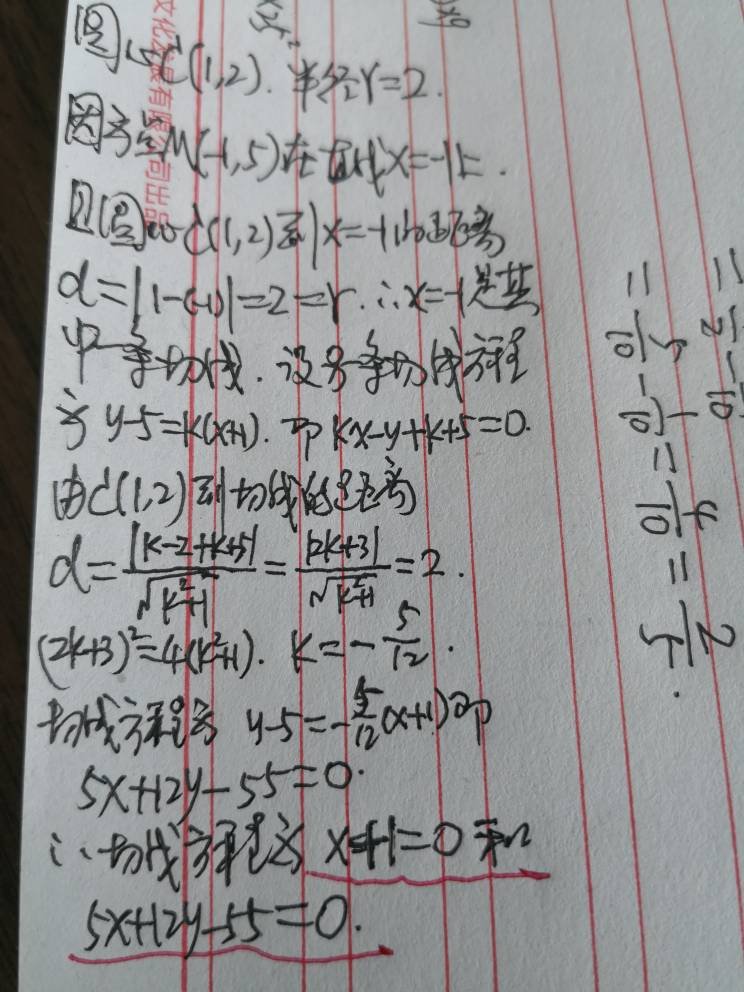 圆心C(1,2). 半径r=2.
因为点M(-1,5)在直线x=-1上.
且圆心C(1,2)到x=-1的距离
d=|1-(-1)|=2=r.∴x=-1是其
中一条切线.设另一条切线方程
为 y-5=k(x+1). 即 kx-y+k+5=0.
由C(1,2)到切线的距离
d=|k-2+k+5|/√k²+1=|2k+3|/√k²+1=2.
(2k+3)²=4(k²+1). k=-5/12.
切线方程为 y-5=-5/12(x+1)即
5x+12y-55=0.
∴切线方程为 x+1=0 和
5x+12y-55=0.
文化发展有限公司出品